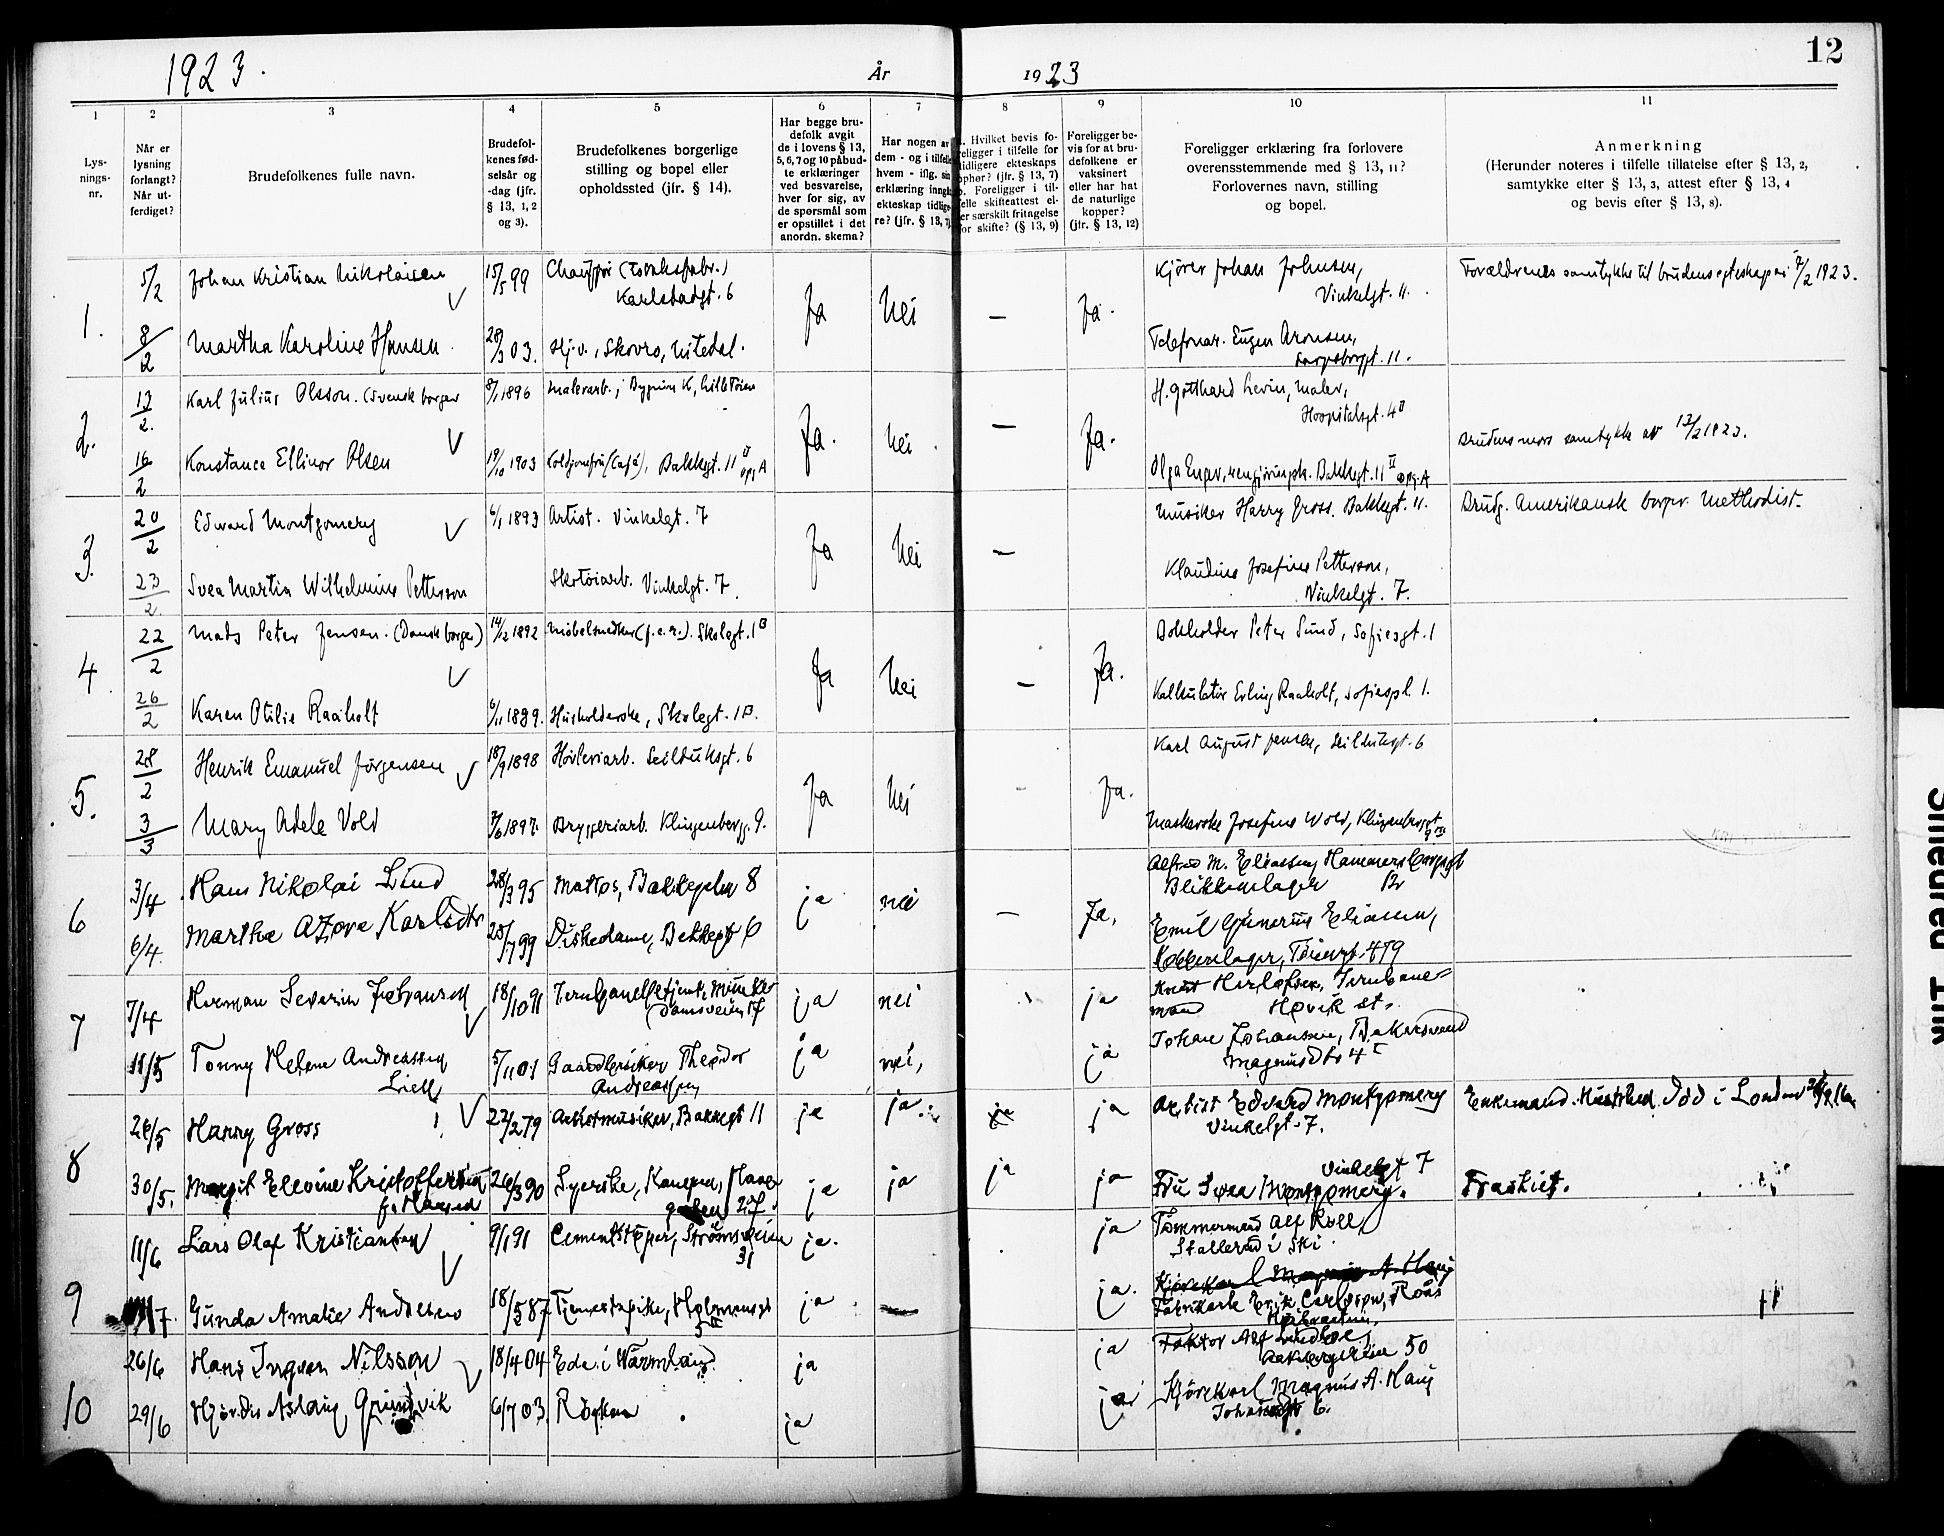 1923.
År
1923
12
1
Lys-
nings-
nr.
2
Når er
lysning
forlangt?
Når ut-
ferdiget?
3
Brudefolkenes fulle navn.
4
Brudefol-
kenes fød-
selsår og
-dag (jfr.
§ 13, 1, 2
og 3).
5
Brudefolkenes borgerlige
stilling og bopel eller
opholdssted (jfr. § 14).
6
Har begge bru-
defolk avgit
de i lovens § 13,
5, 6, 7 og 10 påbud-
te erklæringer
ved besvarelse,
hver for sig, av
de spørsmål som
er opstillet i det
anordn. skema?
7
Har nogen av
dem - og i tilfelle
hvem - iflg. sin
erklæring inngå
ekteskap tidlige-
re? (jfr. § 13, 7)
8
Hvilket bevis fo-
religger i tilfelle for
tidligere ekteskaps
ophør? (jfr. § 13, 7)
b. Foreligger i til-
felle skifteattest el-
er særskilt fritagelse
for skifte? (§ 13, 9)
9
Foreligger be-
vis for at bru-
defolkene er
vaksinert
eller har hat
de naturlige
kopper?
(jfr. § 13, 12)
10
Foreligger erklæring fra forlovere
overensstemmende med § 13, 11?
Forlovernes navn, stilling
og bopel.
11
Anmerkning
(Herunder noteres i tilfelle tillatelse efter § 13, 2,
samtykke efter § 13, 3, attest efter § 13, 4
og bevis efter § 13, 8).
1.
5/2 Johan Kristian Nikolaisen 15/5 99 Chauffør
Karlstadgt. 6
Ja Nei — Ja.
Kjører Johan Johnsen,
Vinkelgt. 11.
Forældrenes samtykke til brudens egteskap av 7/2 1923.
8/2 Martha Karoline Hansen. 28/3 03. Hj.v., Skovro, Nitedal.
Telefonar. Eugen Aronsen,
Sarpsborggt. 11.
2.
13/2. Karl Julius Olsson. (Svensk borger 8/1 1896 Malerarb.,
Ja. Nei. — Ja.
H. Gotthard Levin, Maler,
Hospitalsgt. 4 II
16/2 Konstance Ellinor Olsen 19/10 1903 Koldjomfru (Café), Bakkegt. 11 II
opg A
Olga Enger, rengjøringsk. Bakkegt. 11 II opg. A
Brudens mors samtykke av 13/2 1923.
3.
20/2 Edward Montgomery 6/1 1893 Artist. Vinkelgt. 7
Ja Nei —
Musiker Harry Gross. Bakkegt. 11.
Brudg. Amerikansk borger. Methodist.
23/2 Svea Martin Wilhelmine Petterson Skotøiarb. Vinkelgt. 7.
Klaudine Josefine Petterson,
Vinkelgt. 7.
4
22/2 Mads Peter Jensen. (Dansk borger) 14/2 1892 Møbelsnedker (f.e.r.). Skolegt. 1 B
Ja Nei — Ja.
Bokholder Peter Sund, Sofiesgt. 1
26/2 Karen Otilie Raaholt 6/11 1889. Husholderske, Skolegt. 1 B.
Kalkulatør Erling Raaholt, Sofiespl. 1.
5.
28/2 Henrik Emanuel Jørgensen 18/9 1898 Høvleriarb. Seilduksgt. 6
Ja Nei - Ja.
Karl August Jensen, Seilduksgt. 6
3/3 Mary Adele Vold 7/6 1897. Bryggeriarb. Klingenbergg. 9.
Josefine Wold, Klingenberggt
9 III
6
3/4 Hans Nikolai Lund 28/3 95 Matros, Bakkegaten 8
ja nei — Ja,
Alfred M. Eliassen, Hammersborggt
Blikkenslager
6/4. Martha Karlsdtr 28/7 99 Diskedame, Bakkegt 6
Emil Gunerius Eliassen,
7
7/4 Herman Severin Johansen 18/10 91
ja nei ja
Herlofsen, Jernbane-
mand Høvik st.
11/5 Tonny Helene Andreassen 5/11 01 Gaardbruker Theodor
Andreassen
Liell
ja nei, ja
Johan Johansen,
Magnusgt 4 I
8
26/5 Harry Gross 22/2 79 Artistmusiker, Bakkegt 11
ja ja ja ja
Artist Edvard Montgomery
Vinkelgt. 7.
Enkemand. Hustrued. død i London
30/5. Margit Elevine Kristoffersen 26/3 90 Syerske,
27.
ja ja ja ja
Vinkelgt 7
Fru Svea Montgomery.
Fraskilt.
9
11/6 Lars Olaf Kristiansen 9/1 91 Cementstøper, Strømsveien
31
ja. ja
Tømmermand Alf Roll,
i Ski.
Gunda Amalie Andersen 18/5 87 Tjenestepike, Holmensgt
5 II
ja. — ja.
Erik Carlsson, Roås
10
26/6 Hans Ingvar Nilsson 18/4 04 Eda i Värmland.
ja ja
Faktor Alf Lindboe,
50
29/6 Hjørdis Aslaug Grundvik 6/7 03. Røyken
ja ja
Kjørekarl Magnus A. Haug
6.